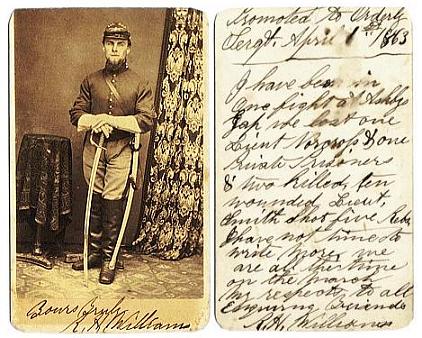 Yours Truly
R. H. Williams
Promoted to Orderly
Sergt. April 1st 1863
I have been in
one fight at Ashbys
Gap we lost one
Lieut Norcross & one
Private Prisoners
& two killed, ten
wounded Lieut,
Smith shot five Rebs
I have not time to
write more we
are at this time
on the march
my respects to all
Enquiring friends
R. H. Williams